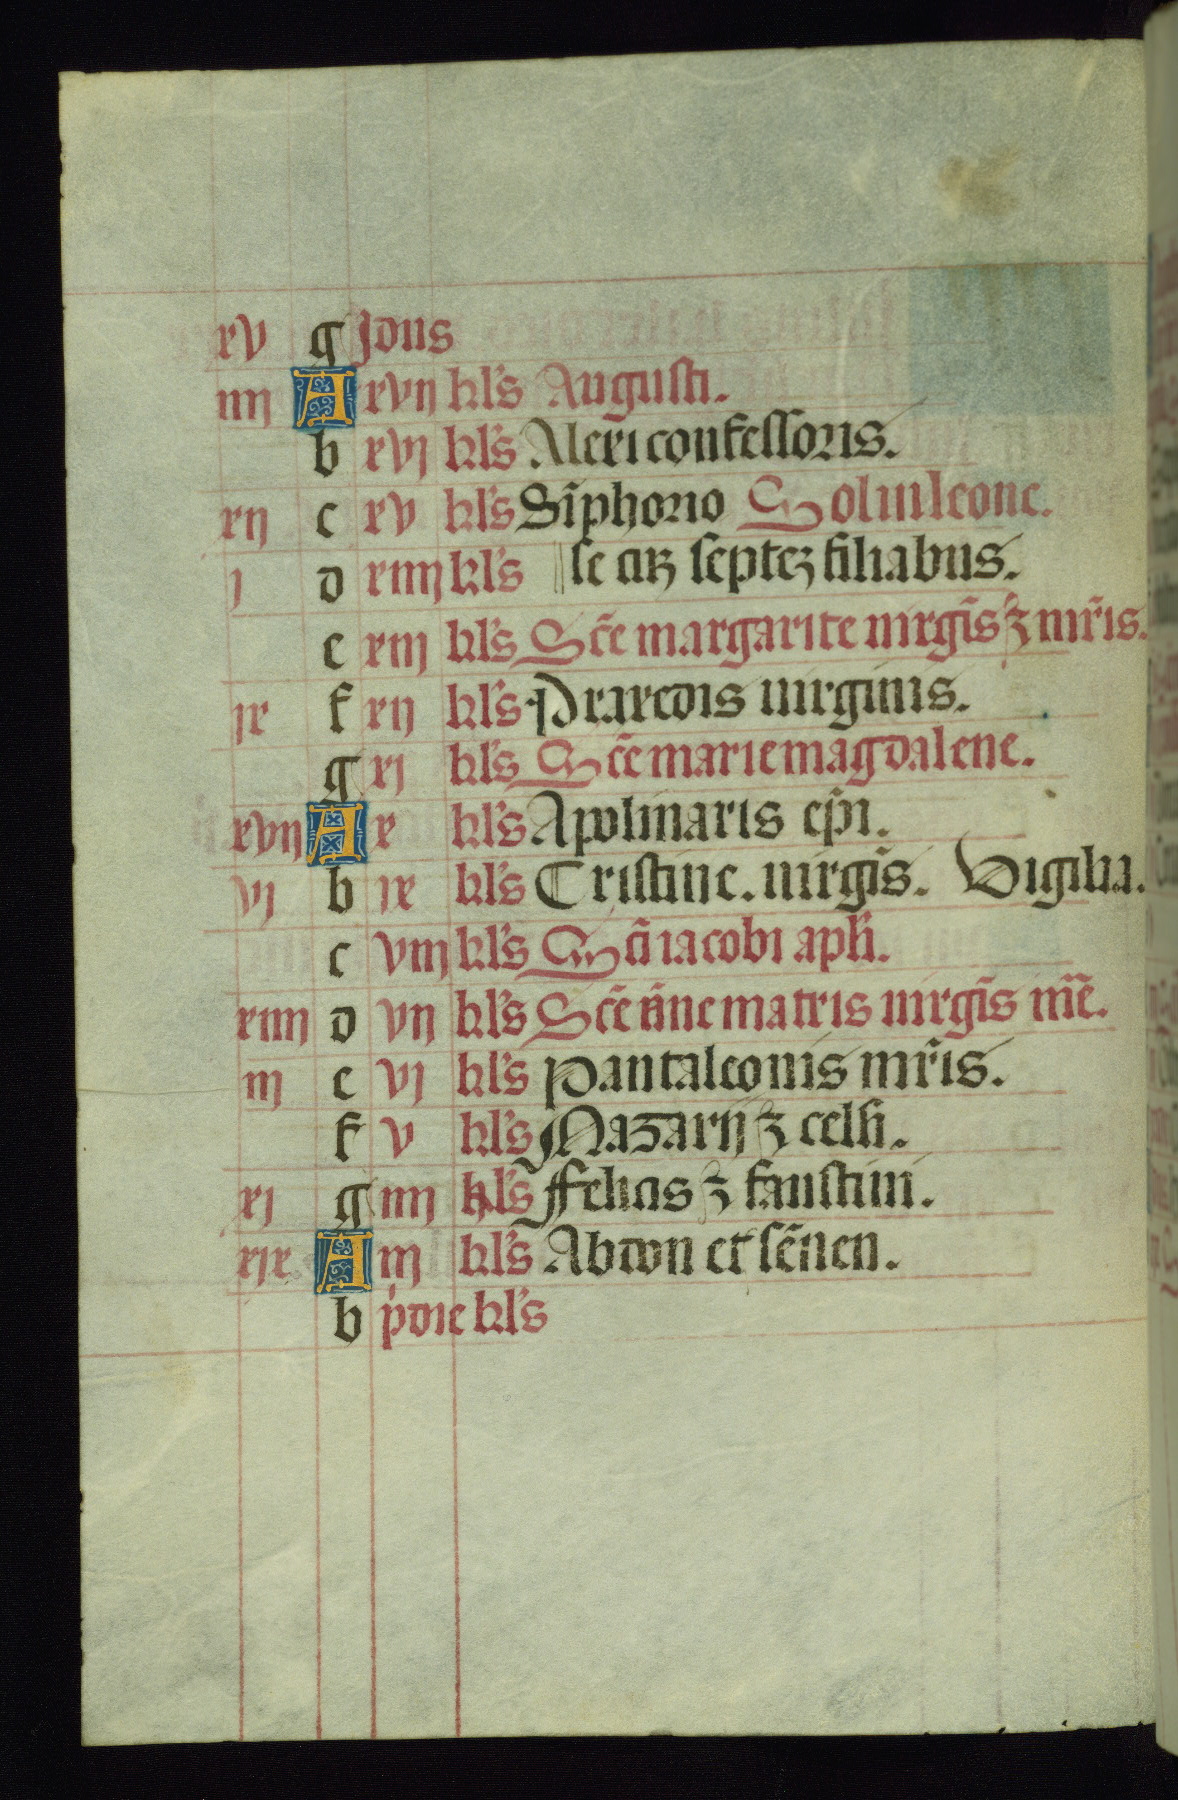 xv g Idus
iiij A xvij kl's Augusti.
b xvj kl's Alexi confessoris.
xij c xv kl's Sīphorio Sol in leone.
j d xiiij kl's se cuȝ septeȝ filiabus.
e xiij kl's Scē margarite uirgīs ⁊ mr̄is.
ix f xij kl's Praxedis uirginis.
g xj kl's Scē marie magdalene.
xvij A x kl's Apolinaris ep̄i.
vj b ix kl's Cristine. uirgīs. Vigilia.
c viij kl's Scī iacobi apl'i.
xiiij d vij kl's Scē āne matris uirgīs mīe.
iij e vj kl's Pantaleonis mr̄is.
f v kl's Nazarij ⁊ celsi.
xj g iiij kl's Felicis ⁊ faustini.
xix A iij kl's Abdon et sēnen.
b pdie kl's